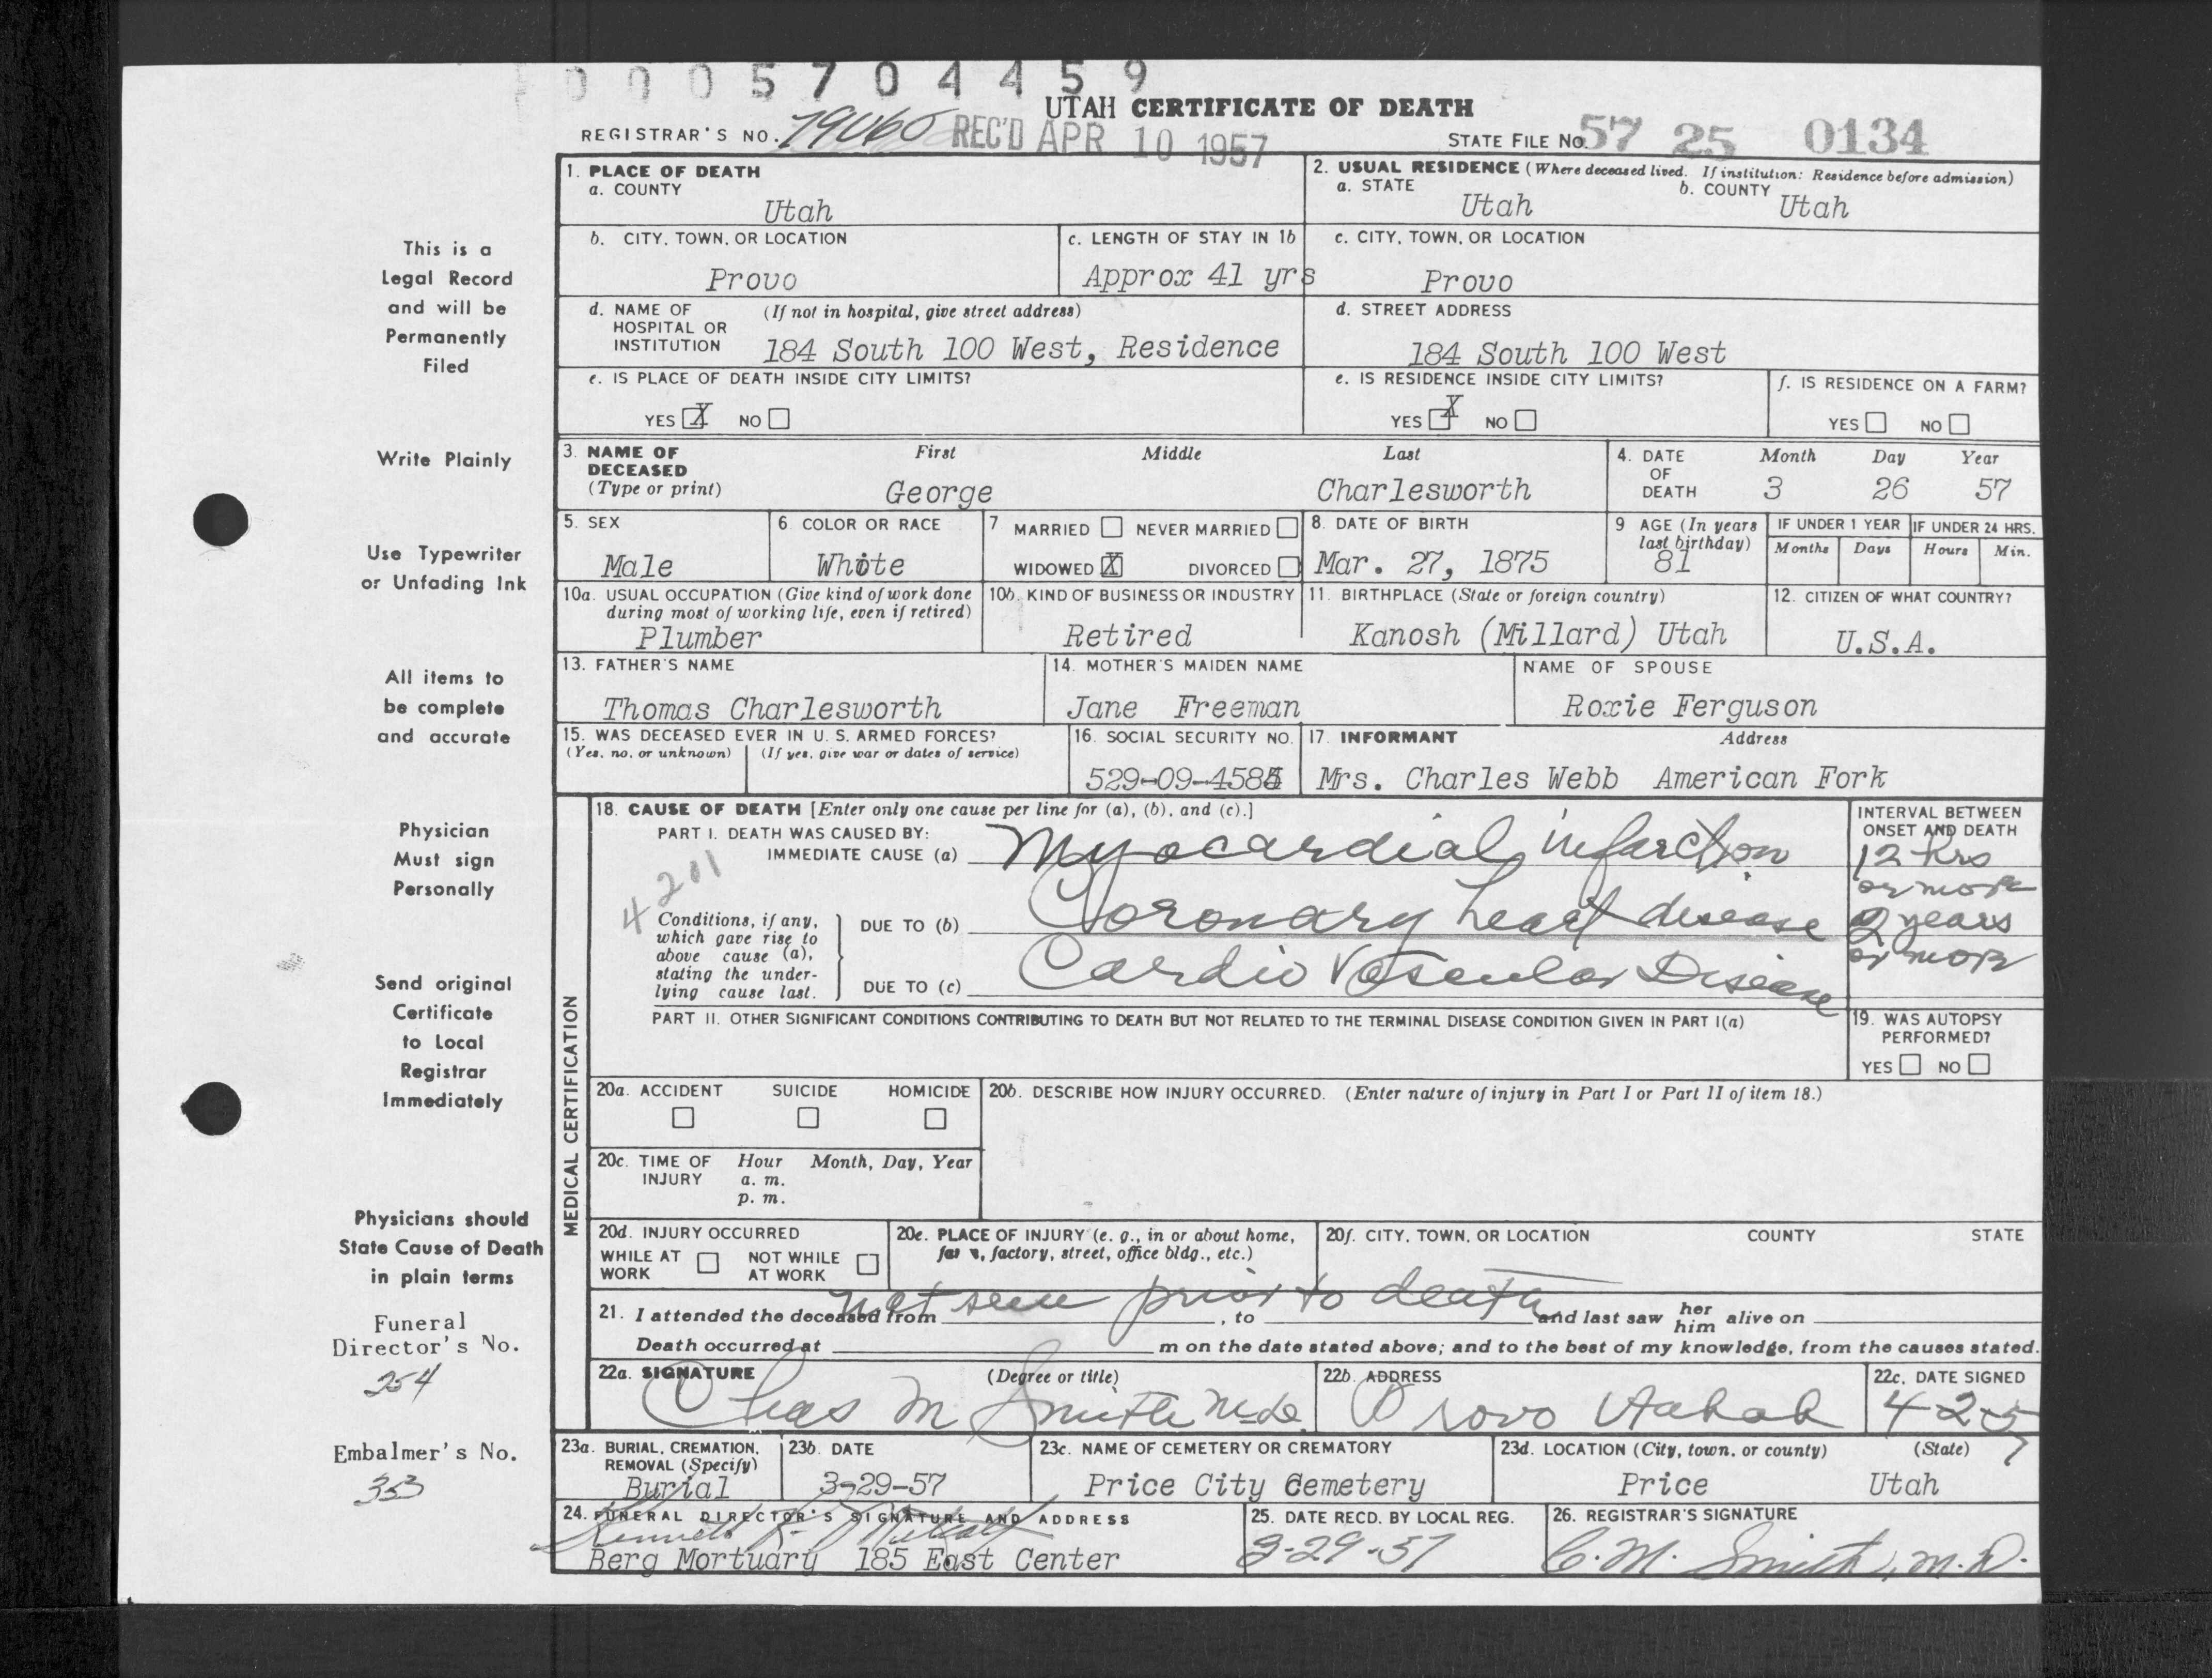 0005704459
UTAH CERTIFICATE OF DEATH
REGISTRAR'S NO. 79U60 REC'D APR 10 1957 STATE FILE NO. 57 25 0134
1. PLACE OF DEATH
a. COUNTY
Utah
2. USUAL RESIDENCE (Where deceased lived. If institution: Residence before admission)
a. STATE b. COUNTY
Utah Utah
b. CITY, TOWN, OR LOCATION
Provo
c. LENGTH OF STAY IN 1b
Approx 41 yrs
c. CITY, TOWN, OR LOCATION
Provo
d. NAME OF (If not in hospital, give street address)
HOSPITAL OR
INSTITUTION 184 South 100 West, Residence
d. STREET ADDRESS
184 South 100 West
e. IS PLACE OF DEATH INSIDE CITY LIMITS?
YES X NO
e. IS RESIDENCE INSIDE CITY LIMITS?
YES X NO
f. IS RESIDENCE ON A FARM?
YES NO
3. NAME OF DECEASED (Type or print)
First Middle Last
George Charlesworth
4. DATE OF DEATH
Month Day Year
3 26 57
5. SEX
Male
6. COLOR OR RACE
White
7 MARRIED NEVER MARRIED
WIDOWED X DIVORCED
8. DATE OF BIRTH
Mar. 27, 1875
9 AGE (In years
last birthday)
81
IF UNDER 1 YEAR IF UNDER 24 HRS.
Months Days Hours Min.
10a. USUAL OCCUPATION (Give kind of work done
during most of working life, even if retired)
Plumber
10b. KIND OF BUSINESS OR INDUSTRY
Retired
11. BIRTHPLACE (State or foreign country)
Kanosh (Millard) Utah
12. CITIZEN OF WHAT COUNTRY?
U.S.A.
13. FATHER'S NAME
Thomas Charlesworth
14. MOTHER'S MAIDEN NAME
Jane Freeman
NAME OF SPOUSE
Roxie Ferguson
15. WAS DECEASED EVER IN U. S. ARMED FORCES?
(Yes, no, or unknown) (If yes, give war or dates of service)
16. SOCIAL SECURITY NO.
529-09-4584
17. INFORMANT Address
Mrs. Charles Webb American Fork
MEDICAL CERTIFICATION
18. CAUSE OF DEATH [Enter only one cause per line for (a), (b), and (c).]
PART I. DEATH WAS CAUSED BY:
IMMEDIATE CAUSE (a) Myocardial infarction
4201
Conditions, if any,
which gave rise to
above cause (a),
stating the under-
lying cause last.
DUE TO (b) Coronary heart disease
DUE TO (c) Cardio Vascular Disease
INTERVAL BETWEEN
ONSET AND DEATH
12 hrs
or more
2 years
or more
PART II. OTHER SIGNIFICANT CONDITIONS CONTRIBUTING TO DEATH BUT NOT RELATED TO THE TERMINAL DISEASE CONDITION GIVEN IN PART I(a)
19. WAS AUTOPSY
PERFORMED?
YES NO
20a. ACCIDENT SUICIDE HOMICIDE
20b. DESCRIBE HOW INJURY OCCURRED. (Enter nature of injury in Part I or Part II of item 18.)
20c. TIME OF INJURY
Hour Month, Day, Year
a. m.
p. m.
20d. INJURY OCCURRED
WHILE AT WORK NOT WHILE AT WORK
20e. PLACE OF INJURY (e. g., in or about home,
farm, factory, street, office bldg., etc.)
20f. CITY, TOWN, OR LOCATION COUNTY STATE
not seen prior to death
21. I attended the deceased from , to and last saw her him alive on
Death occurred at m on the date stated above; and to the best of my knowledge, from the causes stated.
22a. SIGNATURE (Degree or title)
Chas M Smith
22b. ADDRESS
Provo Utahah
22c. DATE SIGNED
4-2-57
23a. BURIAL, CREMATION,
REMOVAL (Specify)
Burial
23b. DATE
3-29-57
23c. NAME OF CEMETERY OR CREMATORY
Price City Cemetery
23d. LOCATION (City, town, or county) (State)
Price Utah
24. FUNERAL DIRECTOR'S SIGNATURE AND ADDRESS
Kenneth
Berg Mortuary 185 East Center
25. DATE RECD. BY LOCAL REG.
3-29-57
26. REGISTRAR'S SIGNATURE
C.M. Smith, M.D.
This is a
Legal Record
and will be
Permanently
Filed
Write Plainly
Use Typewriter
or Unfading Ink
All items to
be complete
and accurate
Physician
Must sign
Personally
Send original
Certificate
to Local
Registrar
Immediately
Physicians should
State Cause of Death
in plain terms
Funeral
Director's No.
254
Embalmer's No.
353